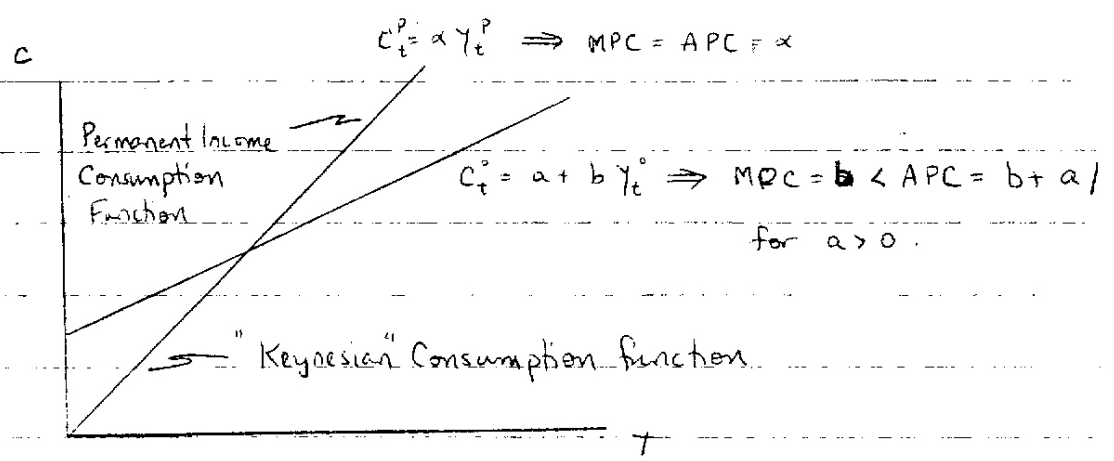 C
Cₜᴾ = α Yₜᴾ ⟹ MPC = APC = α
Permanent Income
Consumption
Function
Cₜ° = a + b Yₜ° ⟹ MPC = b < APC = b + a/
for a > 0.
"Keynesian" Consumption function
Y